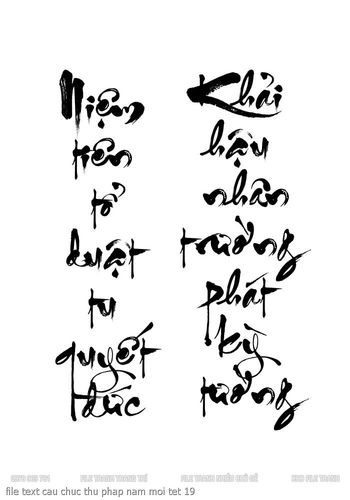 Niệm
tiên
tổ
duật
tu
quyết
đức
Khải
hậu
nhân
trường
phát
kỳ
tường
file text cau chuc thu phap nam moi tet 19